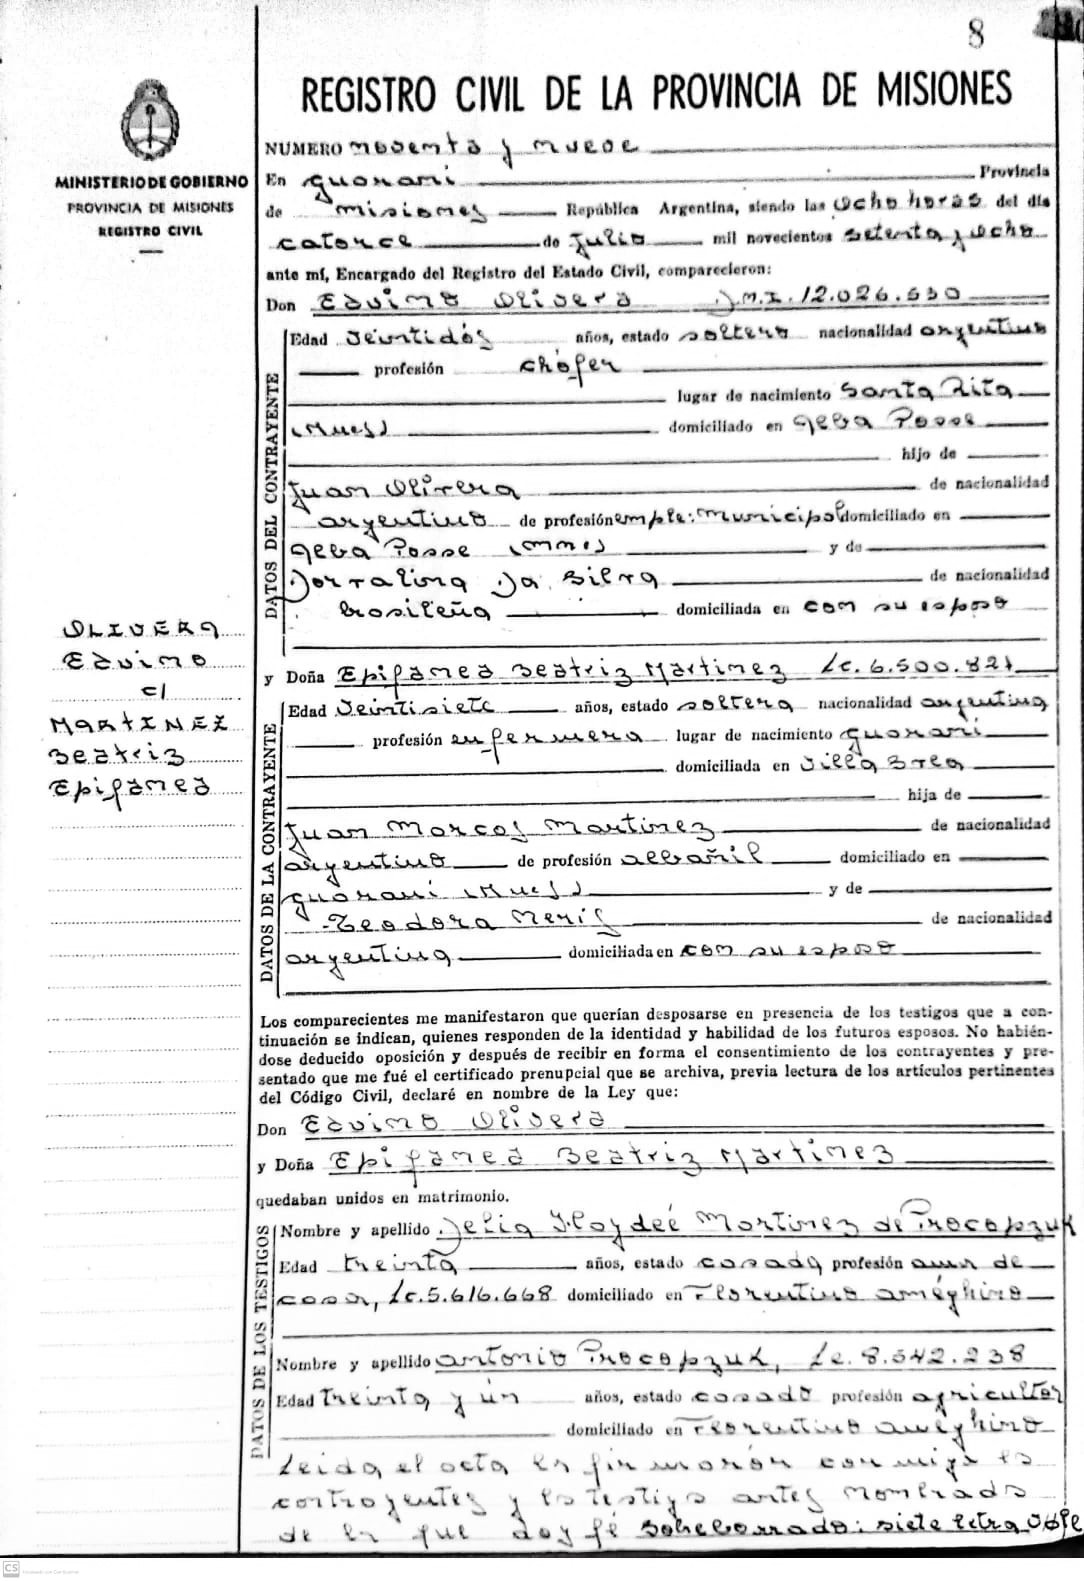 8
REGISTRO CIVIL DE LA PROVINCIA DE MISIONES
MINISTERIO DE GOBIERNO
PROVINCIA DE MISIONES
REGISTRO CIVIL
NUMERO noventa y nueve
En Guarani Provincia
de misiones República Argentina, siendo las ocho horas del día
catorce de Julio mil novecientos setenta y ocho
ante mí, Encargado del Registro del Estado Civil, comparecieron:
Don Edvino Olivera D.N.I. 12.026.530
DATOS DEL CONTRAYENTE
Edad veintidós años, estado soltero nacionalidad argentino
profesión chófer
lugar de nacimiento Santa Rita
(Mnes) domiciliado en Alba Posse
hijo de
Juan Olivera de nacionalidad
argentino de profesión emple: municipal domiciliado en
Alba Posse (mnes) y de
Dorralina Da Silva de nacionalidad
brasileña domiciliada en con su esposo
OLIVERA
Edvino
c/
MARTINEZ
Beatriz
Epifanea
y Doña Epifanea Beatriz Martinez Lc. 6.500.821
DATOS DE LA CONTRAYENTE
Edad Veintisiete años, estado soltera nacionalidad argentina
profesión enfermera lugar de nacimiento Guarani
domiciliada en Villa Brea
hija de
Juan Marcos Martinez de nacionalidad
argentino de profesión albañil domiciliado en
Guarani (Mnes) y de
Teodora Neris de nacionalidad
argentina domiciliada en con su esposo
Los comparecientes me manifestaron que querían desposarse en presencia de los testigos que a con-
tinuación se indican, quienes responden de la identidad y habilidad de los futuros esposos. No habién-
dose deducido oposición y después de recibir en forma el consentimiento de los contrayentes y pre-
sentado que me fué el certificado prenupcial que se archiva, previa lectura de los artículos pertinentes
del Código Civil, declaré en nombre de la Ley que:
Don Edvino Olivera
y Doña Epifanea Beatriz Martinez
quedaban unidos en matrimonio.
DATOS DE LOS TESTIGOS
Nombre y apellido Delia Haydeé Martinez de Procopzuk
Edad treinta años, estado casada profesión ama de
casa, Lc. 5.616.668 domiciliado en Florentino Améghino
Nombre y apellido Antonio Procopzuk, Le. 8.542.238
Edad treinta y ún años, estado casado profesión agricultor
domiciliado en Florentino Améghino
Leida el acta la firmarón conmigo los
contrayentes y los testigos antes nombrados
de lo que doy fé sobeborrado: siete letra